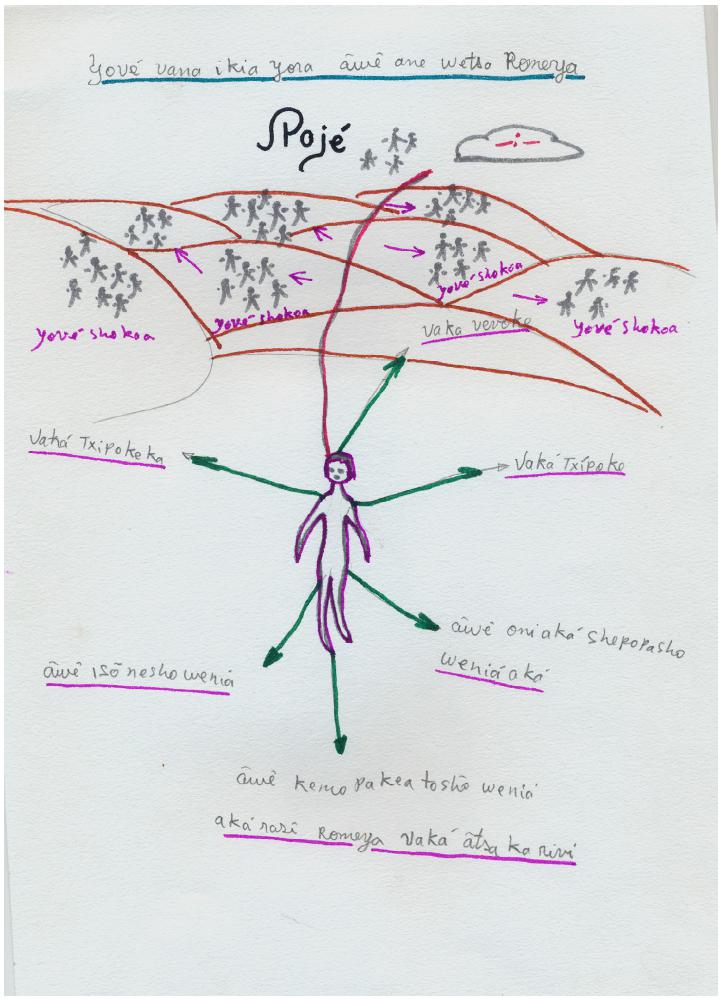 Yové vana ikia yora âwê ane wetsa Romeya
Pojé
yové shokoa
yové shokoa
yové shokoa
yové shokoa
vaka vevoke
vaká Txipokeka
vaká Txípoke
âwê oni aká shepopasho
weniá aká
âwê isõ nesho weniá
âwê kemo pakea toshô weniá
aká rasî Romeya vaká âtsa ka rivi